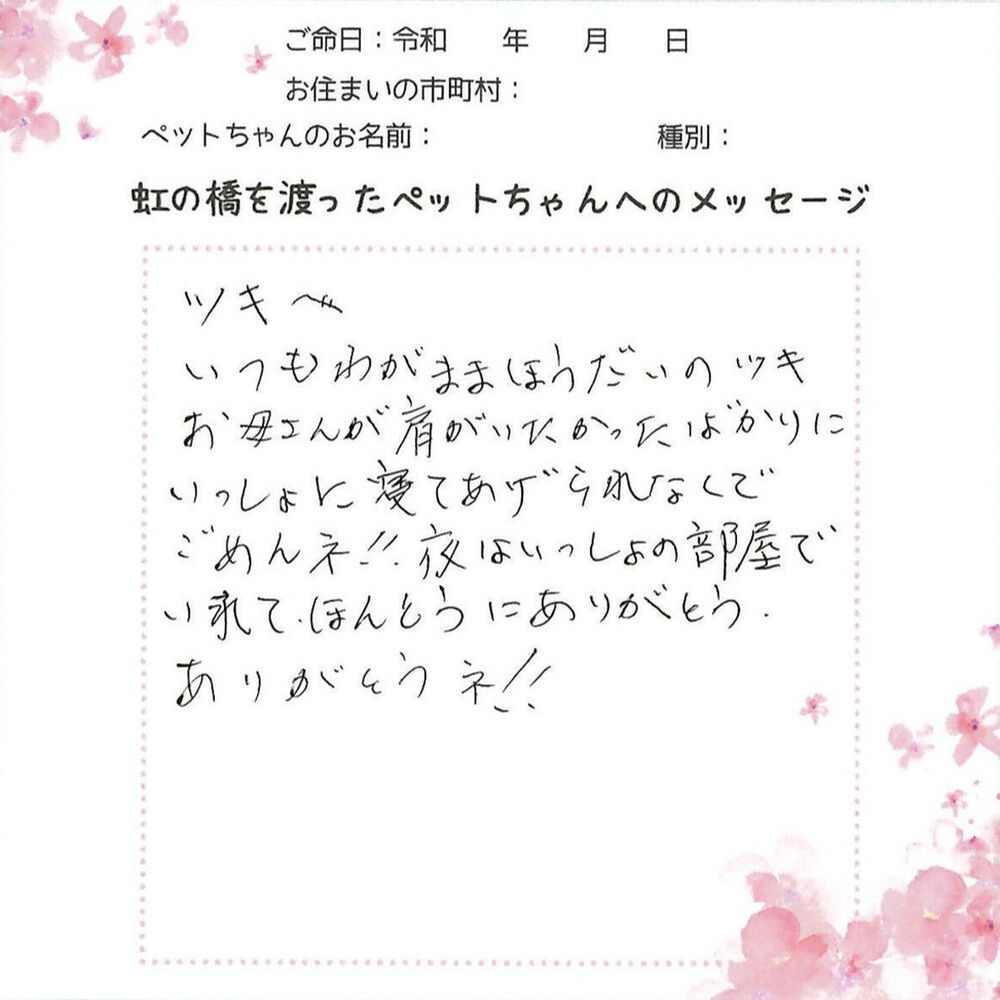 ご命日：令和　　年　　月　　日
お住まいの市町村：
ペットちゃんのお名前：　　　　　　　　種別：
虹の橋を渡ったペットちゃんへのメッセージ
ツキへ
いつもわがままほうだいのツキ
お母さんが肩がいたかったばかりに
いっしょに寝てあげられなくて
ごめんネ!!夜はいっしょの部屋で
い れて、ほんとうにありがとう.
ありがとうネ!!